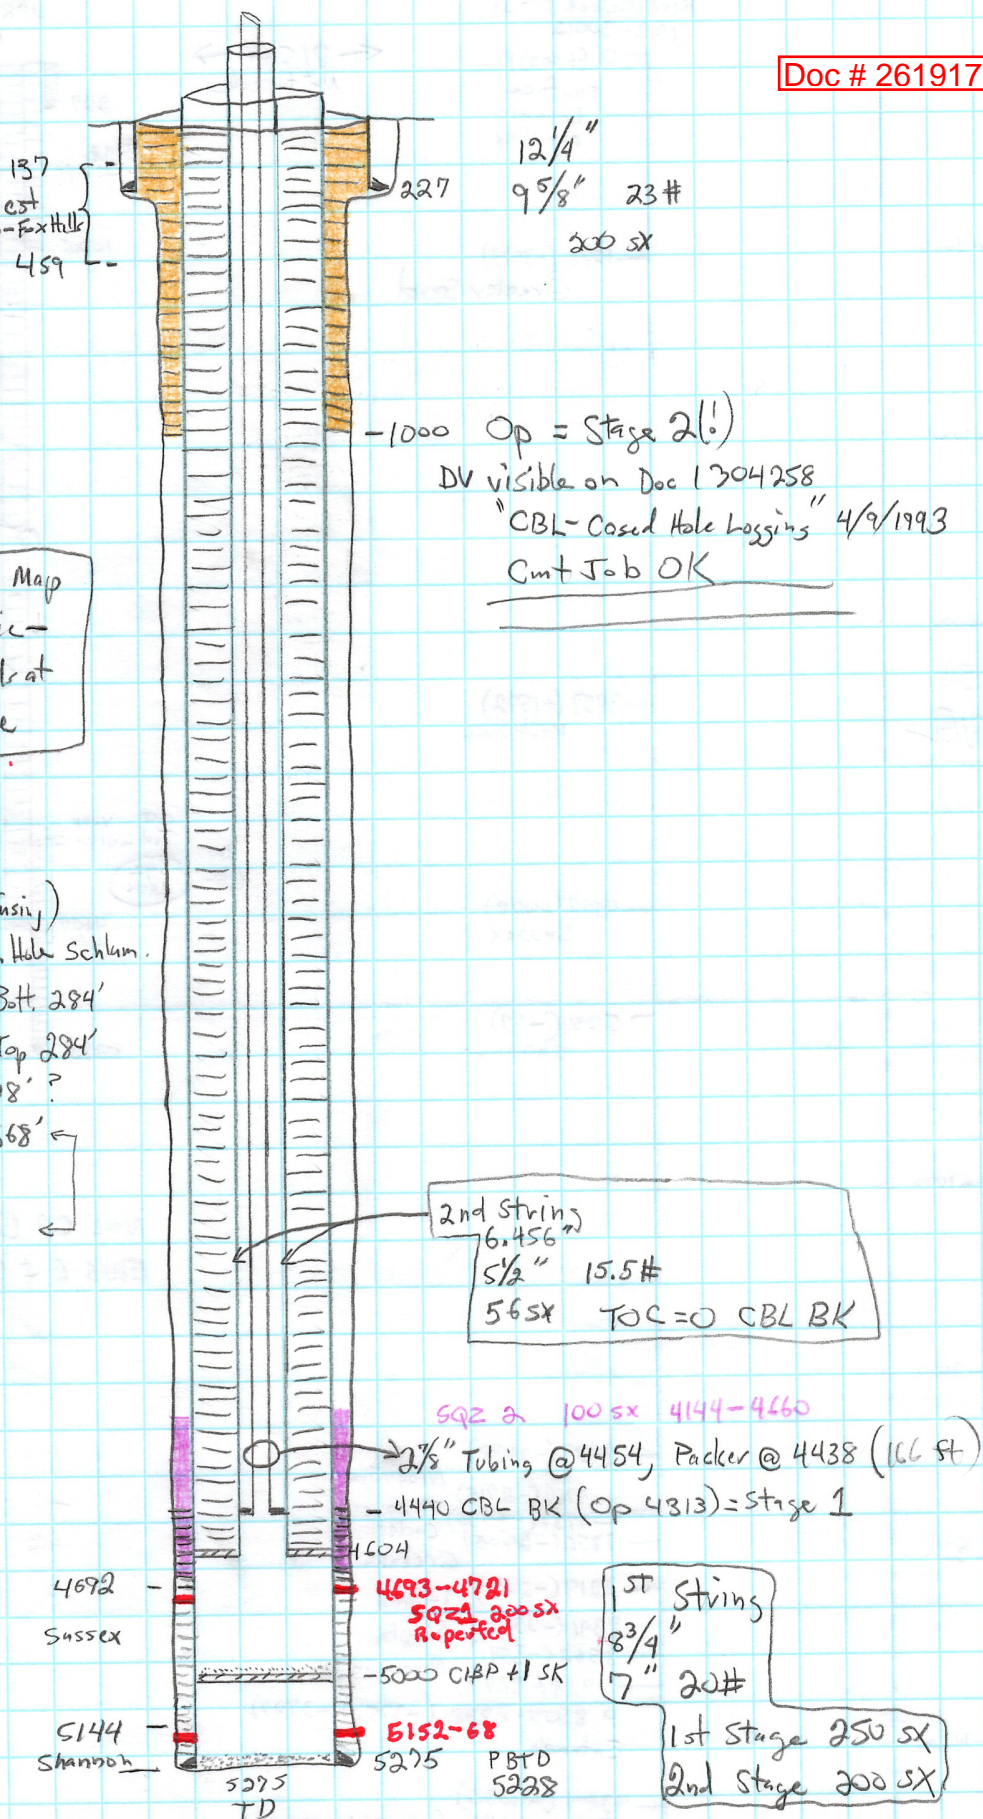 Doc # 261917
12 1/4"
137
227
9 5/8" 23#
est
-Fox Hills
200 SX
459
-1000 Op = Stage 2(!)
DV visible on Doc 1304258
"CBL-Cased Hole Logging" 4/9/1993
Cmt Job OK
Map
ic-
ls at
e
using)
Hole Schlum.
Bott. 284'
Top 284'
8' ?
68'
2nd String
6.456"
5 1/2" 15.5#
56 SX TOC = 0 CBL BK
SQZ 2 100 SX 4144-4660
2 7/8" Tubing @ 4454, Packer @ 4438 (166 ft)
- 4440 CBL BK (Op 4313) = Stage 1
4604
4692 -
Sussex
4693-4721
SQZ1 200 SX
Reperfed
1st String
8 3/4"
7" 20#
-5000 CIBP + 1 SK
1st Stage 250 SX
2nd Stage 200 SX
5144
Shannon
5152-68
5275 PBTD
5228
5275
TD